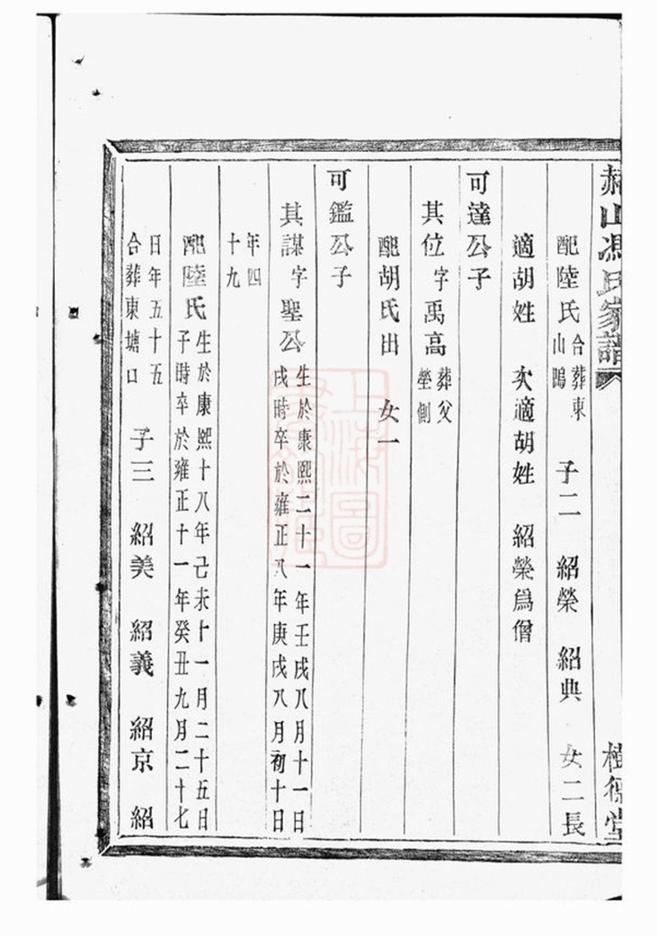 赫山馮氏家譜
樹德堂
配陸氏 合葬東山鴫 子二 紹榮 紹典 女二長
適胡姓 次適胡姓 紹榮爲僧
可達公子
其位 字禹高 葬父塋側
配胡氏出 女一
可鑑公子
其謀 字聖公 生於康熙二十一年壬戌八月十一日戌時卒於雍正八年庚戌八月初十日
年四十九
配陸氏 生於康熙十八年己未十一月二十五日子時卒於雍正十一年癸丑九月二十七
日年五十五合葬東塘口 子三 紹美 紹義 紹京 紹